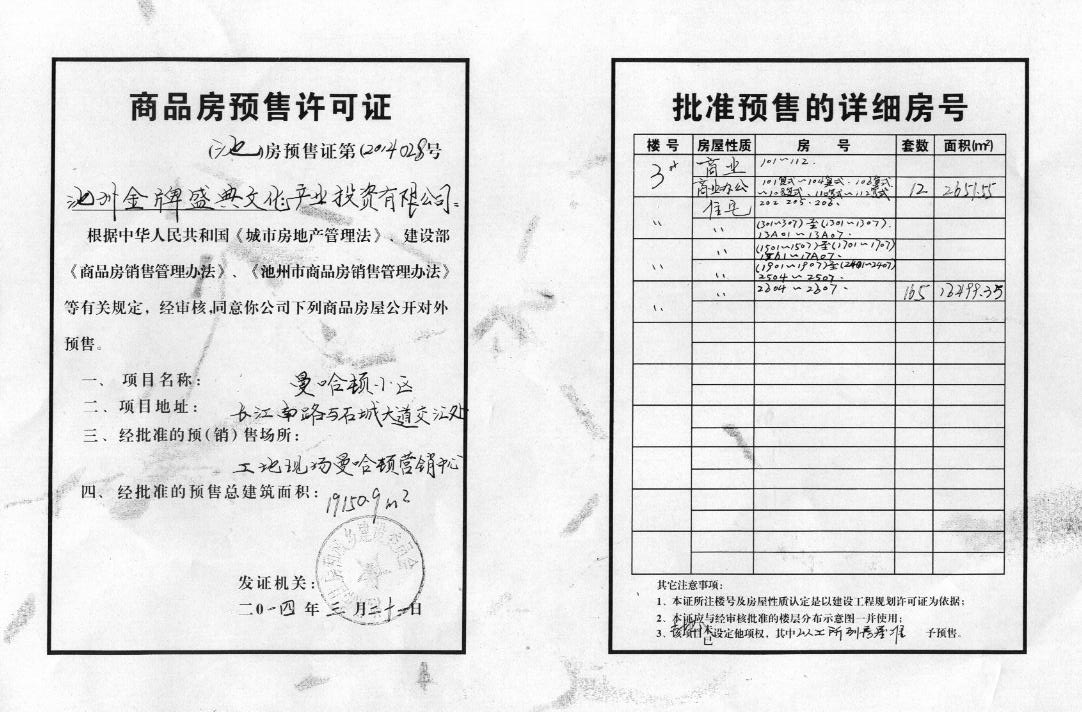 商品房预售许可证
(池)房预售证第(2014028号
池州金牌盛典文化产业投资有限公司:
根据中华人民共和国《城市房地产管理法》、建设部
《商品房销售管理办法》、《池州市商品房销售管理办法》
等有关规定，经审核,同意你公司下列商品房屋公开对外
预售。
一、项目名称: 曼哈顿小区
二、项目地址: 长江南路与石城大道交汇处
三、经批准的预(销)售场所:
工地现场曼哈顿营销中心
四、经批准的预售总建筑面积: 19150.9m²
发证机关:
二0一四年三月二十一日
批准预售的详细房号
楼号 房屋性质 房号 套数 面积(m²)
3# 商业 101~112.
商业办公 101复式~104复式·106复式
~108复式·110复式~112复式 12 2651.55
住宅 202 205 206.
〃 〃 (301~307)至(1301~1307).
13A01~13A07.
〃 (1501~1507)至(1701~1707)
~17A07.
〃 〃 (1901~1907)至(2401~2407)
2504~2507.
〃 〃 2604~2607. 165
其它注意事项:
1、本证所注楼号及房屋性质认定是以建设工程规划许可证为依据;
2、本证应与经审核批准的楼层分布示意图一并使用;
3、该项目未已设定他项权，其中以上所列房屋准予预售。